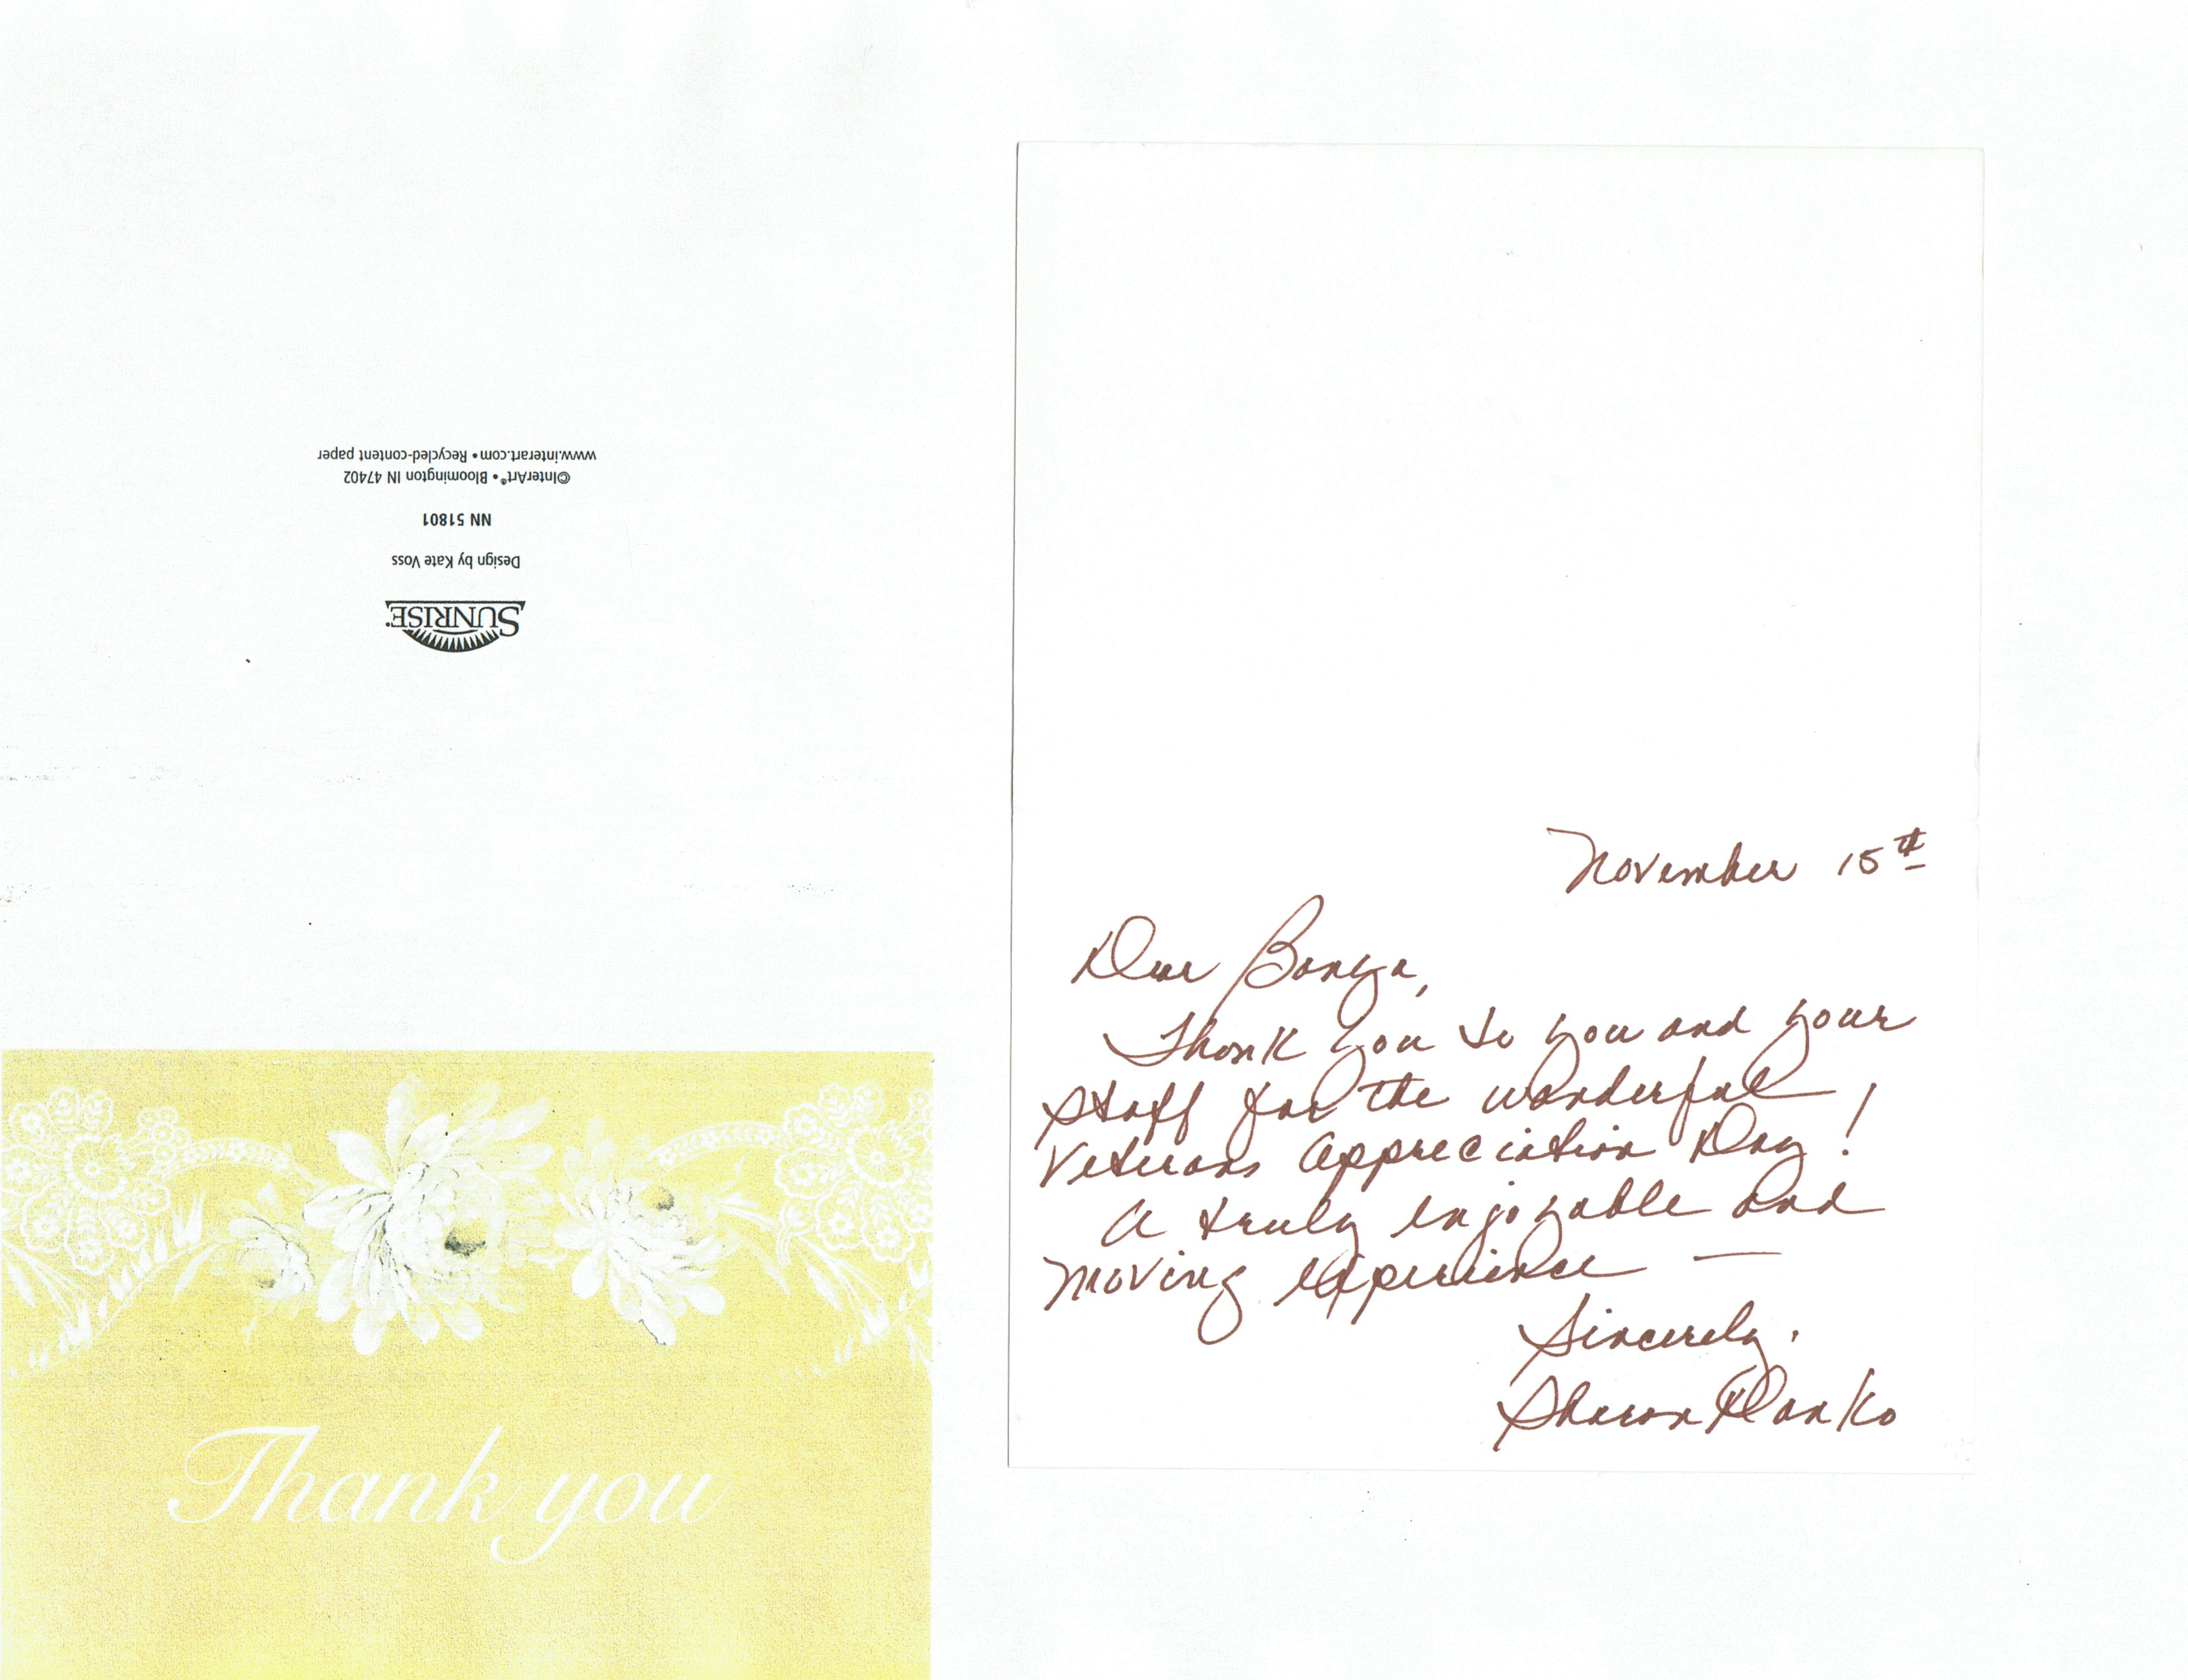 www.interart.com • Recycled-content paper
©InterArt® • Bloomington IN 47402
NN 51801
Design by Kate Voss
SUNRISE
Thank you
November 15th
Dear
Thank you to you and your
staff for the wonderful
Veterans Appreciation Day!
A truly enjoyable and
moving experience —
Sincerely,
Sharon Danko